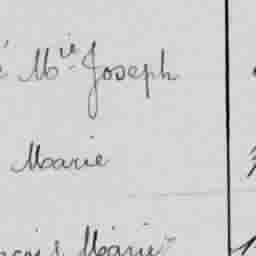 Mie Joseph
Marie
Marie